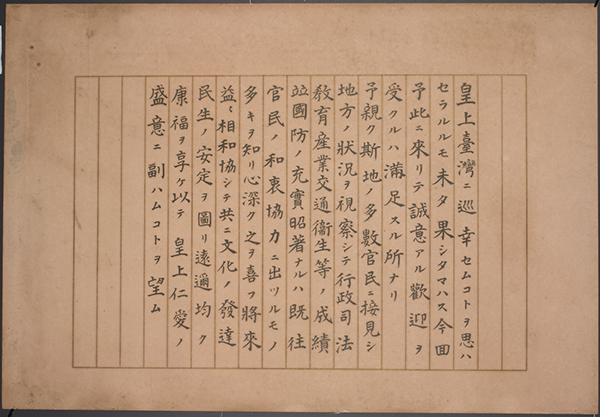 皇上臺灣ニ巡幸セムコトヲ思ハ
セラルルモ未タ果シタマハス今回
予此ニ來リテ誠意アル歡迎ヲ
受クルハ滿足スル所ナリ
予親ク斯地ノ多數官民ニ接見シ
地方ノ狀況ヲ視察シテ行政司法
敎育產業交通衞生等ノ成績
竝國防ノ充實昭著ナルハ既往
官民ノ和衷協力ニ出ツルモノ
多キヲ知リ心深ク之ヲ喜フ將來
益〻相和協シテ共ニ文化ノ發達
民生ノ安定ヲ圖リ遠邇均ク
康福ヲ享ケ以テ 皇上仁愛ノ
盛意ニ副ハムコトヲ望ム